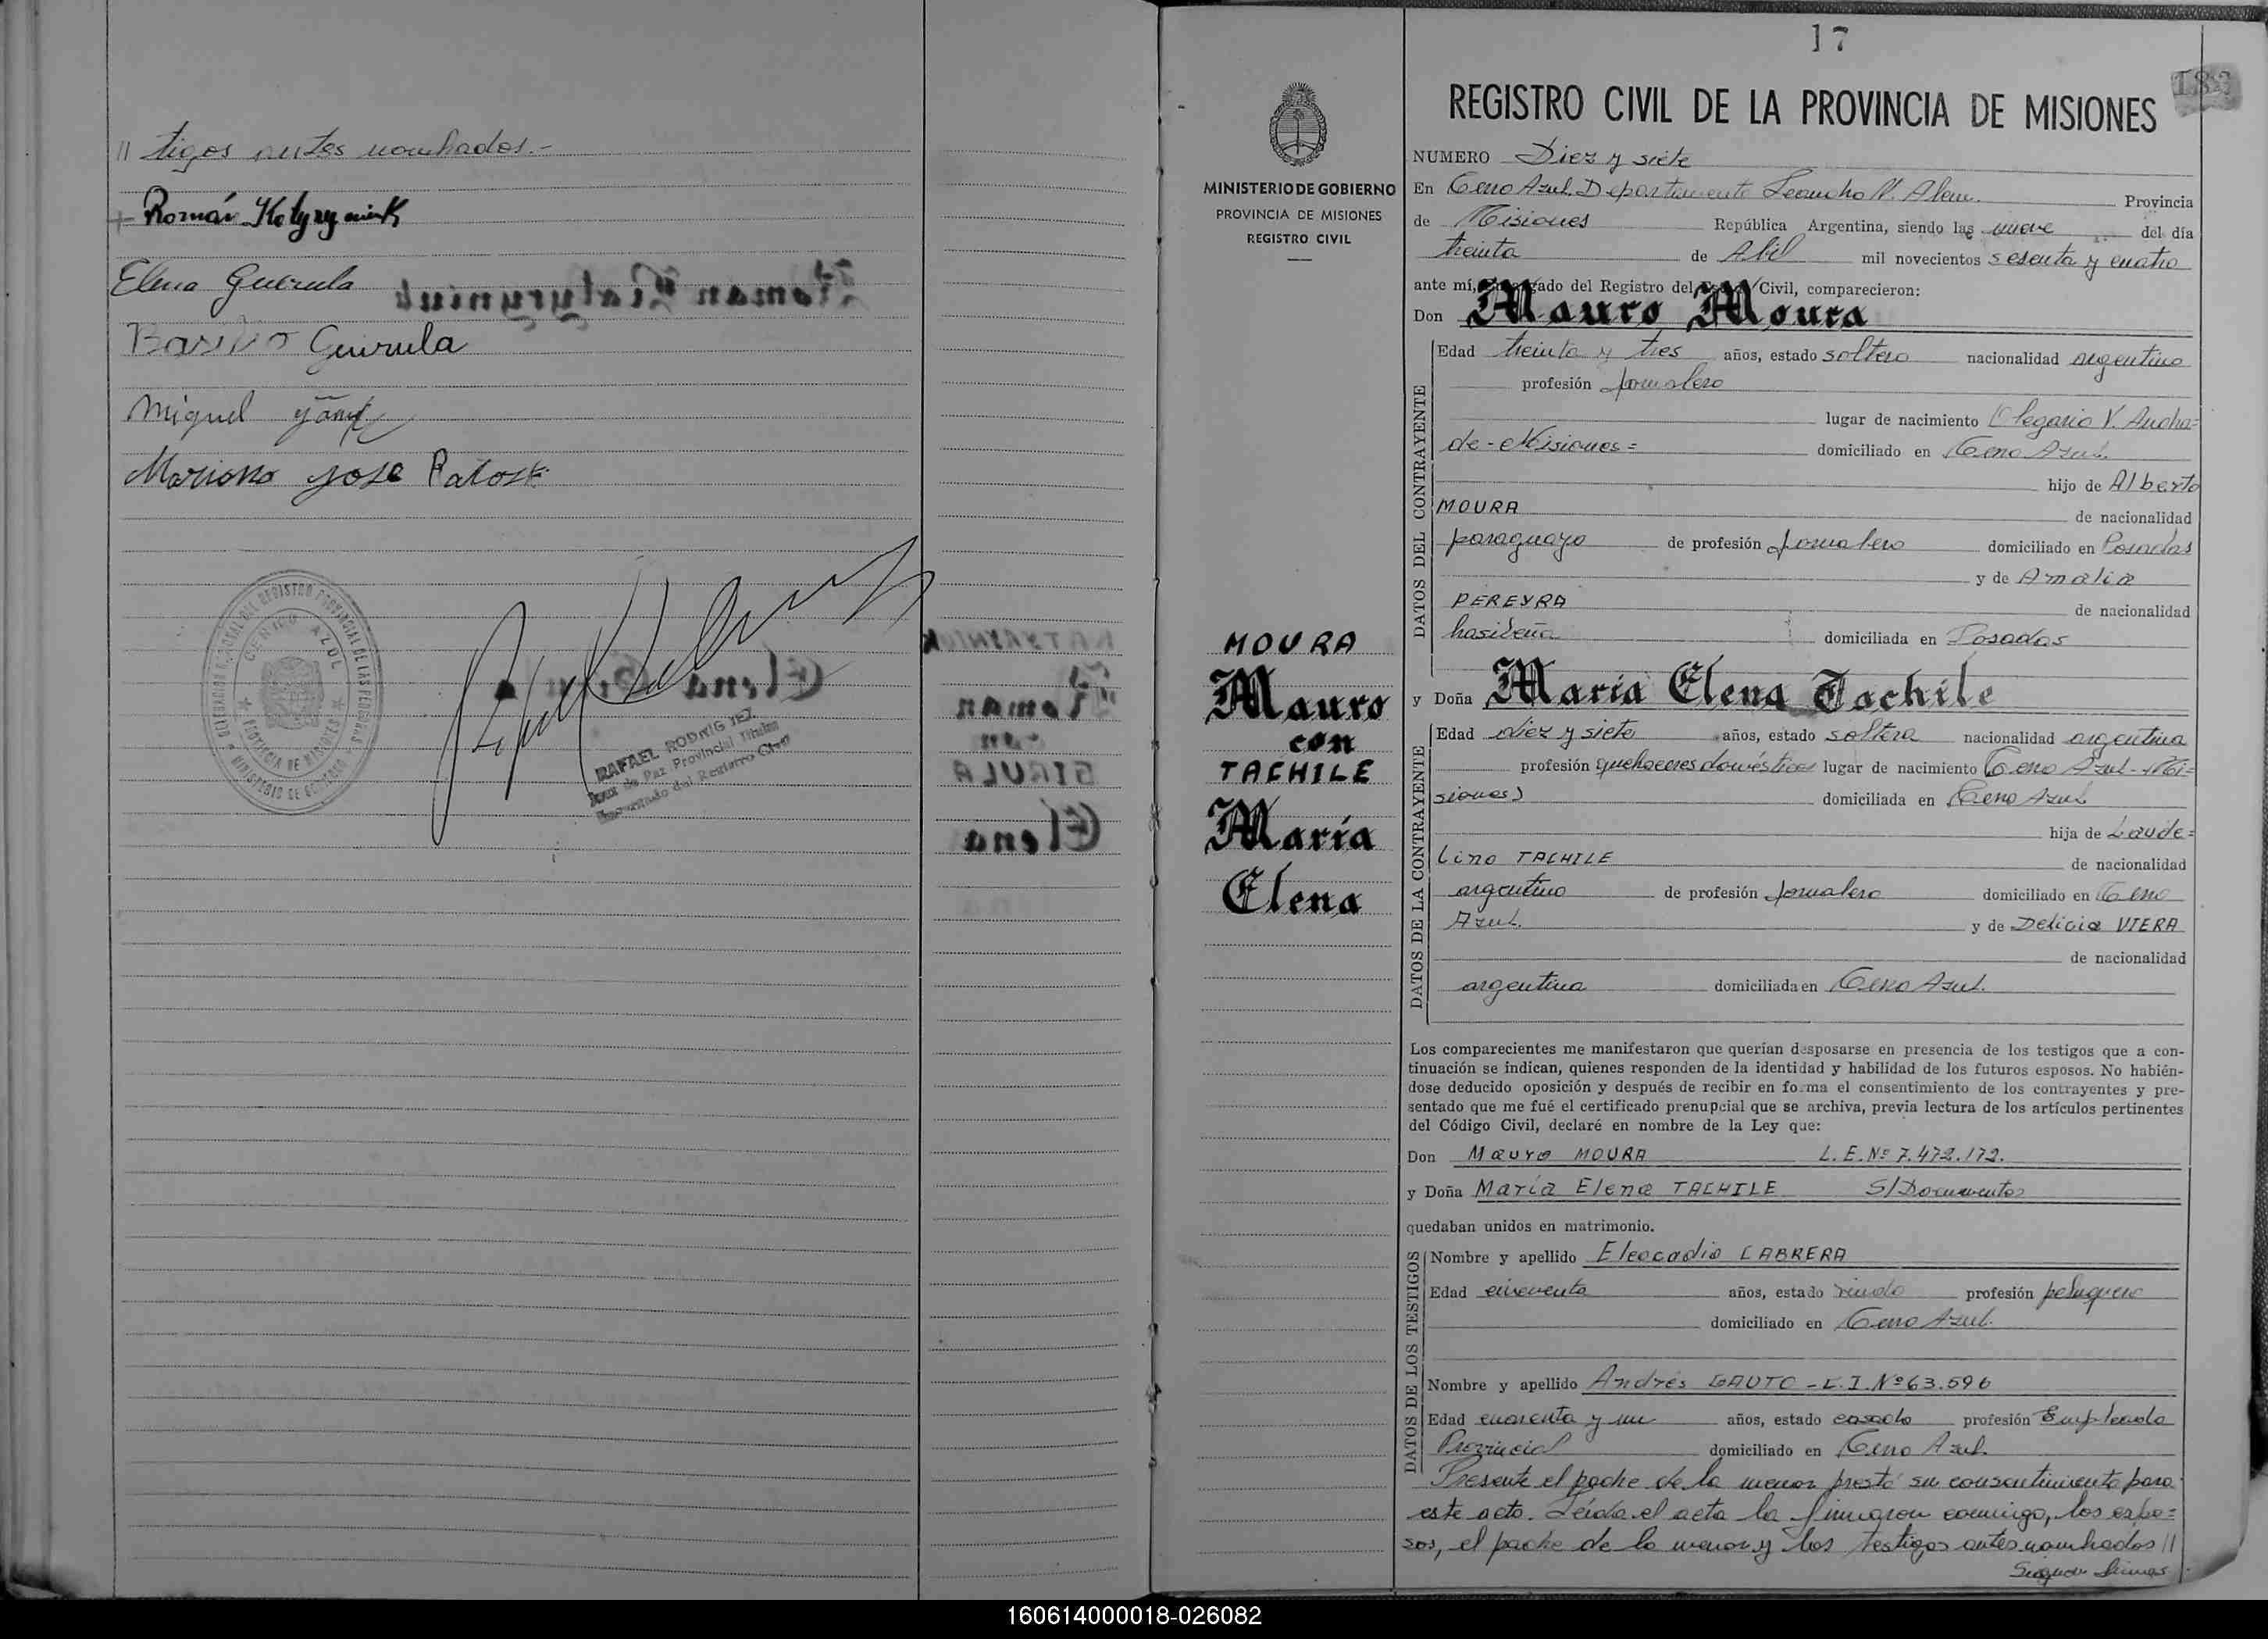 // tigos antes nombrados.-
Román Katyryniuk
Elena Guirula
Basilio Guirula
Miguel
Mariano Jose
DELEGACION SECCIONAL DEL REGISTRO PROVINCIAL DE LAS PERSONAS
CERRO AZUL
PROVINCIA DE MISIONES
MINISTERIO DE GOBIERNO
RAFAEL RODRIGUEZ
Juez de Paz Provincial Titular
Encargado del Registro Civil
17
183
MINISTERIO DE GOBIERNO
PROVINCIA DE MISIONES
REGISTRO CIVIL
MOURA
Mauro
con
TACHILE
María
Elena
REGISTRO CIVIL DE LA PROVINCIA DE MISIONES
NUMERO Diez y siete
En Cerro Azul. Departamento Leandro N. Alem. Provincia
de Misiones República Argentina, siendo las nueve del día
treinta de Abril mil novecientos sesenta y cuatro
ante mí, Encargado del Registro del Civil, comparecieron:
Don Mauro Moura
DATOS DEL CONTRAYENTE
Edad treinta y tres años, estado soltero nacionalidad argentino
profesión jornalero
lugar de nacimiento Olegario V. Andra=
de - Misiones = domiciliado en Cerro Azul.
hijo de Alberto
MOURA de nacionalidad
paraguayo de profesión jornalero domiciliado en Posadas
y de Amalia
PEREYRA de nacionalidad
brasileña domiciliada en Posadas
y Doña María Elena Tachile
DATOS DE LA CONTRAYENTE
Edad diez y siete años, estado soltera nacionalidad argentina
profesión quehaceres domésticos lugar de nacimiento Cerro Azul - Mi=
siones) domiciliada en Cerro Azul
hija de Laude=
lino TACHILE de nacionalidad
argentino de profesión jornalero domiciliado en Cerro
Azul. y de Delicia VIERA
de nacionalidad
argentina domiciliada en Cerro Azul.
Los comparecientes me manifestaron que querían desposarse en presencia de los testigos que a con-
tinuación se indican, quienes responden de la identidad y habilidad de los futuros esposos. No habién-
dose deducido oposición y después de recibir en forma el consentimiento de los contrayentes y pre-
sentado que me fué el certificado prenupcial que se archiva, previa lectura de los artículos pertinentes
del Código Civil, declaré en nombre de la Ley que:
Don Mauro MOURA L.E.Nº 7.472.172.
y Doña María Elena TACHILE S/Documentos
quedaban unidos en matrimonio.
DATOS DE LOS TESTIGOS
Nombre y apellido Eleocadio CABRERA
Edad cincuenta años, estado viudo profesión peluquero
domiciliado en Cerro Azul.
Nombre y apellido Andrés GAUTO - C.I. Nº 63.596
Edad cuarenta y un años, estado casado profesión Empleado
Provincial domiciliado en Cerro Azul.
Presente el padre de la menor prestó su consentimiento para
este acto. Leída el acta la firmaron conmigo, los espo=
sos, el padre de la menor y los testigos antes nombrados //
Siguen firmas
160614000018-026082